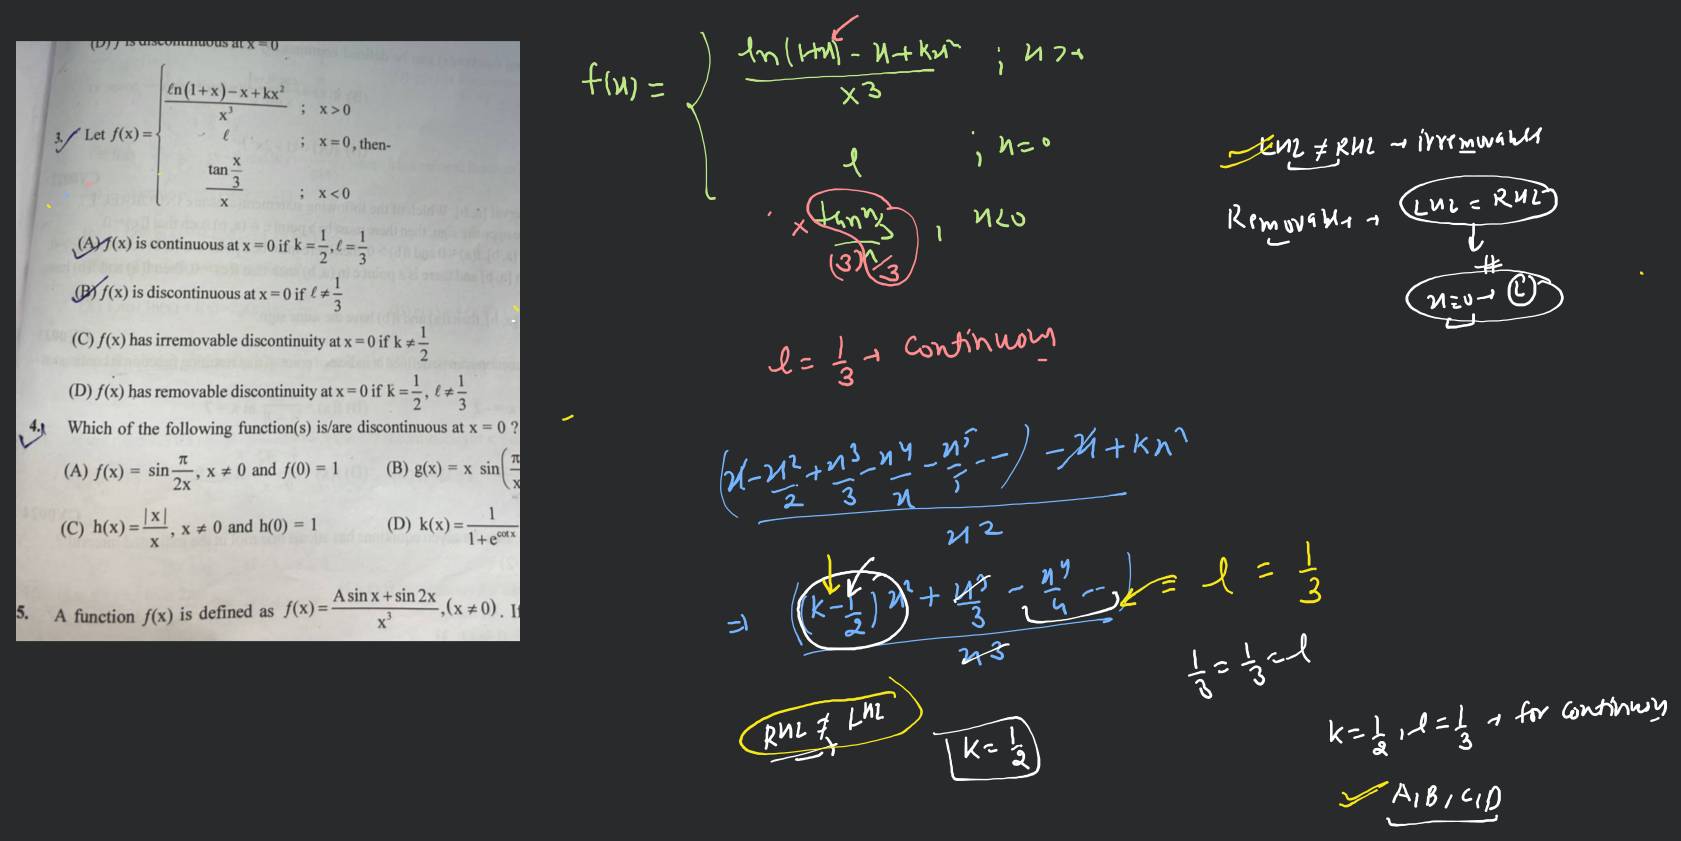 (D) f is discontinuous at x = 0
3. Let f(x) = { (ℓn(1+x) − x + kx²)/x³ ; x > 0
ℓ ; x = 0, then-
(tan x/3)/x ; x < 0
(A) f(x) is continuous at x = 0 if k = 1/2, ℓ = 1/3
(B) f(x) is discontinuous at x = 0 if ℓ ≠ 1/3
(C) f(x) has irremovable discontinuity at x = 0 if k ≠ 1/2
(D) f(x) has removable discontinuity at x = 0 if k = 1/2, ℓ ≠ 1/3
4. Which of the following function(s) is/are discontinuous at x = 0 ?
(A) f(x) = sin π/2x, x ≠ 0 and f(0) = 1 (B) g(x) = x sin(π/x
(C) h(x) = |x|/x, x ≠ 0 and h(0) = 1 (D) k(x) = 1/(1+e^cotx
5. A function f(x) is defined as f(x) = (A sin x + sin 2x)/x³, (x ≠ 0). If
f(x) = { (ln(1+x) − x + kx²)/x3 ; x >
l ; x = 0
x tan x/3 / (3) x/3 , x < 0
l = 1/3 → continuous
(x − x²/2 + x3/3 − x4/x − x5/5 - - ) − x + kx²
x2
⇒ ((k − 1/2) x² + x3/3 − x4/4 - - ) / x3 = l = 1/3
1/3 = 1/3 = l
RHL ≠ LHL
k = 1/2
LHL ≠ RHL → irremovable
Removable → LHL = RHL
↓
≠
x=0 → L
k = 1/2, l = 1/3 → for continuous
A, B, C, D